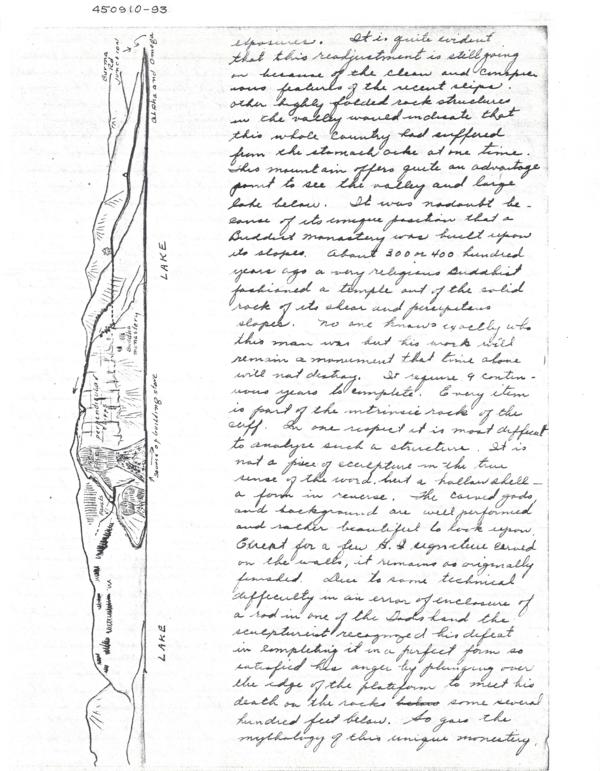 450910-93
Burma
Rd
Junction
Alpha and Omega
LAKE
buddha
monastery
perpendicular
source of building stone
LAKE
exposures. It is quite evident
that this readjustment is still going
on because of the clean and conspic-
uous features of the recent slips.
Other highly folded rock structures
in the valley would indicate that
this whole country had suffered
from the stomach ache at one time.
This mountain offers quite an advantage
point to see the valley and large
lake below. It was nodoubt be-
cause of its unique position that a
Buddist monastery was built upon
its slopes. About 300 or 400 hundred
years ago a very religious Buddhist
fashioned a temple out of the solid
rock of its shear and percipitous
slopes. No one knows exactly who
this man was but his work will
remain a monument that time alone
will not distroy. It requires 9 contin-
uous years to complete. Every item
is part of the intrinsic rock of the
cliff. In one respect it is most difficult
to analyze such a structure. It is
not a piece of sculpture in the true
sense of the word, but a hollow shell -
a form in reverse. The carved gods,
and background are well performed
and rather beautiful to look upon.
Except for a few G.I. signature carved
on the walls, it remains as originally
finished. Due to some technical
difficulty in an error of enclosure of
a rod in one of the Gods hand the
sculpturist recognized his defeat
in completing it in a perfect form so
satisfied his anger by plunging over
the edge of the plateform to meet his
death on the rocks below some several
hundred feet below. So goes the
mythology of this unique monestery.